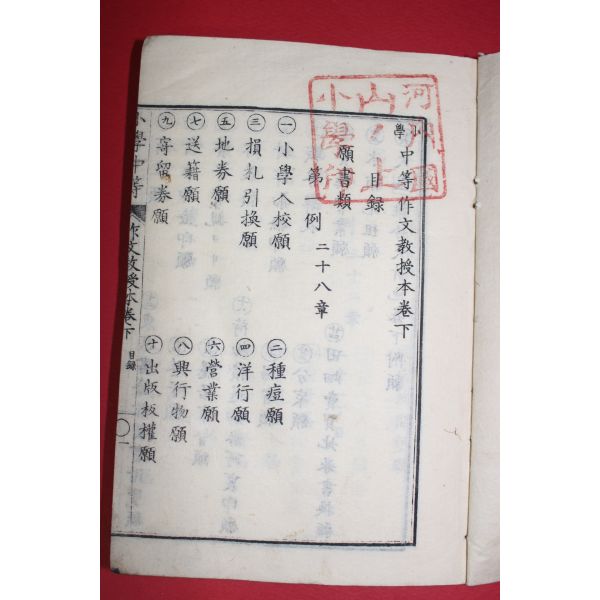 小學中等作文教授本卷下
目錄
願書類
第一例 二十八章
㊀小學入校願
㊁種痘願
㊂損札引換願
㊃洋行願
㊄地券願
㊅營業願
㊆送籍願
㊇興行物願
㊈寄留券願
㊉出版板權願
小學中等 作文教授本卷下 目錄 一
河 國
山ノ上
小學